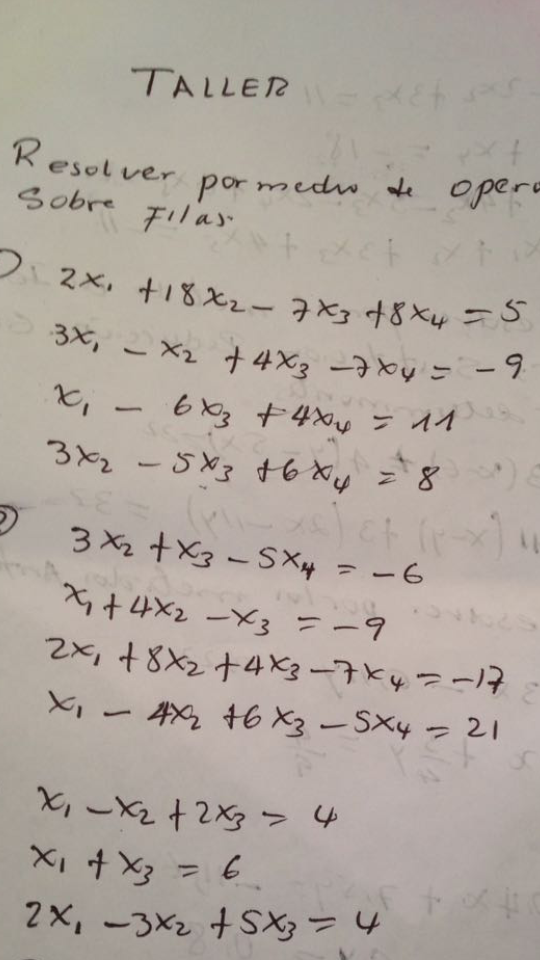 TALLER
Resolver por medio de oper
Sobre Filas.
2x₁ + 18x₂ - 7x₃ + 8x₄ = 5
3x₁ - x₂ + 4x₃ - 7x₄ = -9
x₁ - 6x₃ + 4x₄ = 11
3x₂ - 5x₃ + 6x₄ = 8
3x₂ + x₃ - 5x₄ = -6
x₁ + 4x₂ - x₃ = -9
2x₁ + 8x₂ + 4x₃ - 7x₄ = -17
x₁ - 4x₂ + 6x₃ - 5x₄ = 21
x₁ - x₂ + 2x₃ = 4
x₁ + x₃ = 6
2x₁ - 3x₂ + 5x₃ = 4